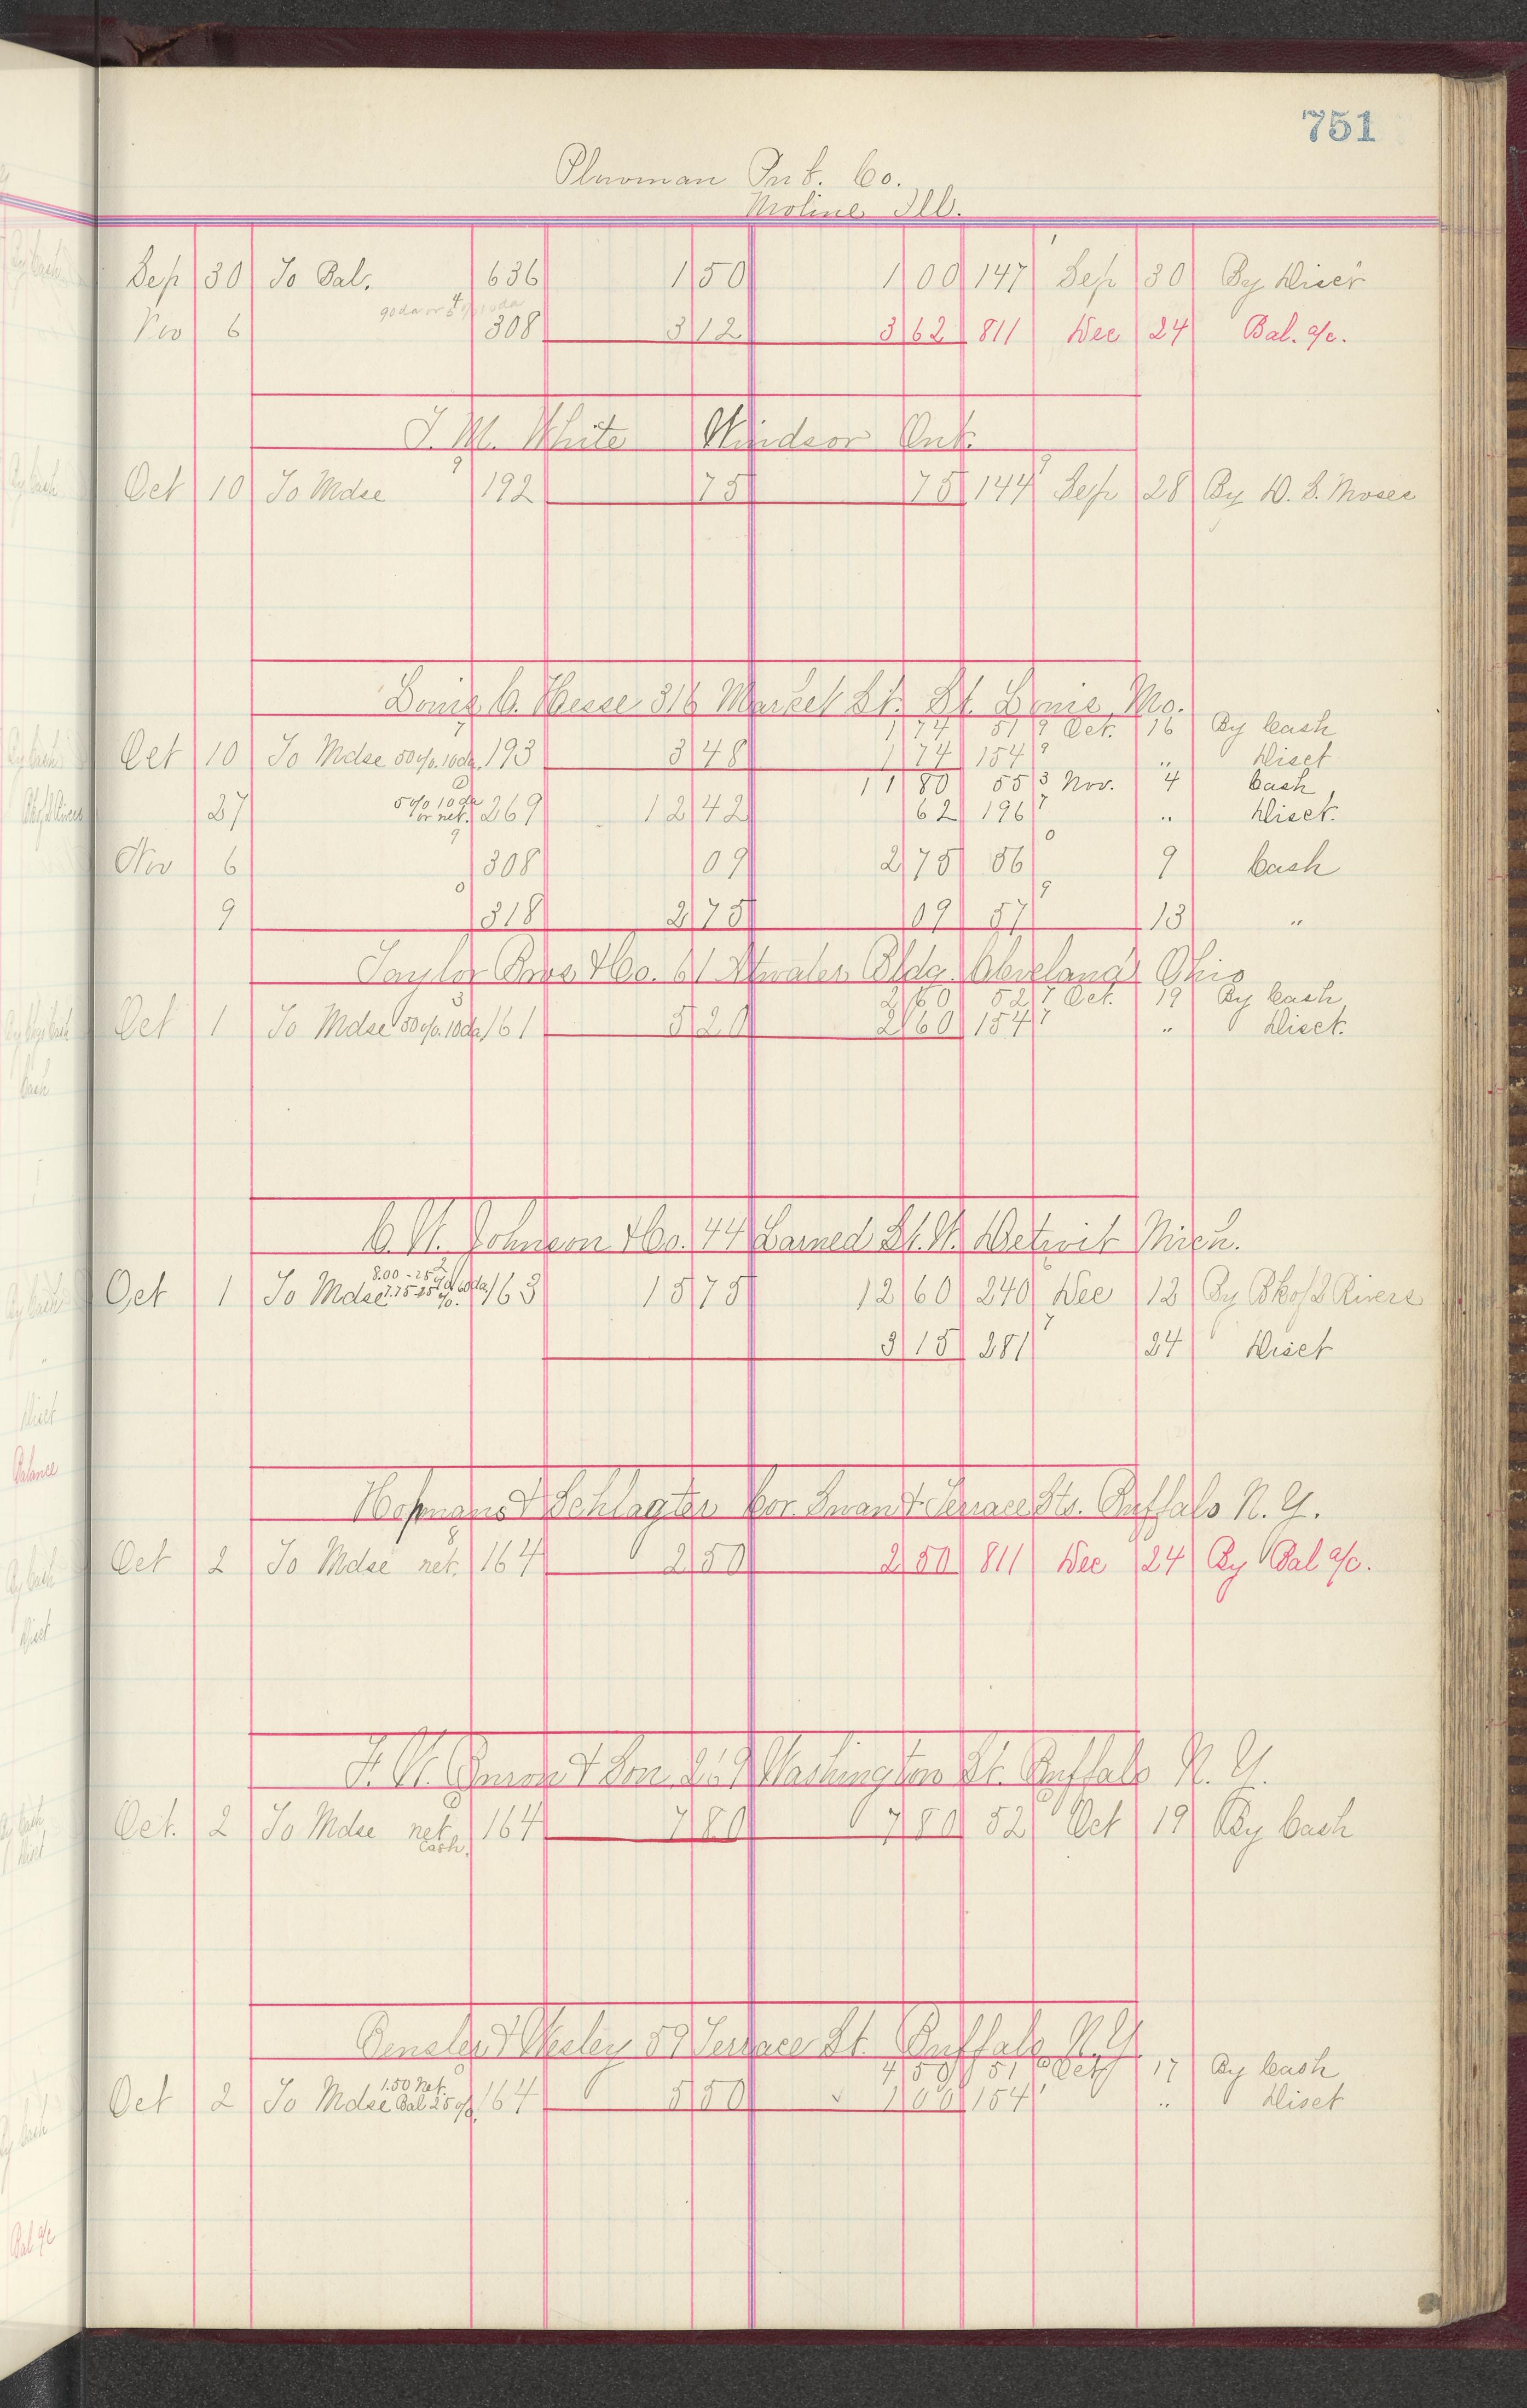 751
Plowman Pub. Co.
Moline Ill.
Sep 30 To Bal. 636 1 50 1 00 147 1 Sep 30 By Disct
Nov 6 4 308 3 12 3 62 811 Dec 24 Bal. a/c.
J. M. White Windsor Ont.
Oct 10 To Mdse 9 192 75 75 144 9 Sep 28 By D. S. Moses
Louis C. Hesse 316 Market St. St. Louis Mo.
1 74 51 9 Oct. 16 By Cash
Oct 10 To Mdse 50%. 10da. 7 193 3 48 1 74 154 9 " Disct
11 80 55 3 Nov. 4 Cash
27 5% 10 da or net. 269 12 42 62 196 7 " Disct.
Nov 6 9 308 09 2 75 56 0 9 Cash
9 0 318 2 75 09 57 9 13 "
Taylor Bros & Co. 61 Atwater Bldg. Cleveland Ohio
2 60 52 7 Oct. 19 By Cash
Oct 1 To Mdse 50%. 10da. 3 161 5 20 2 60 154 7 " Disct.
C. W. Johnson & Co. 44 Larned St. W. Detroit Mich.
Oct 1 To Mdse 8.00 - 25 7.75 - 25 %. 60da. 2 163 15 75 12 60 240 6 Dec 12 By Bk of 2 Rivers
3 15 281 7 24 Disct
& Schlagter Cor. Swan & Terrace Sts. Buffalo N. Y.
Oct 2 To Mdse net. 8 164 2 50 2 50 811 Dec 24 By Bal a/c.
& Son Washington St. Buffalo N. Y.
Oct. 2 To Mdse net Cash. 164 7 80 7 80 52 Oct 19 By Cash
59 Terrace St. Buffalo N. Y.
4 50 51 Oct 17 By Cash
Oct 2 To Mdse 1.50 Net. Bal 25%. 164 5 50 1 00 154 1 " Disct